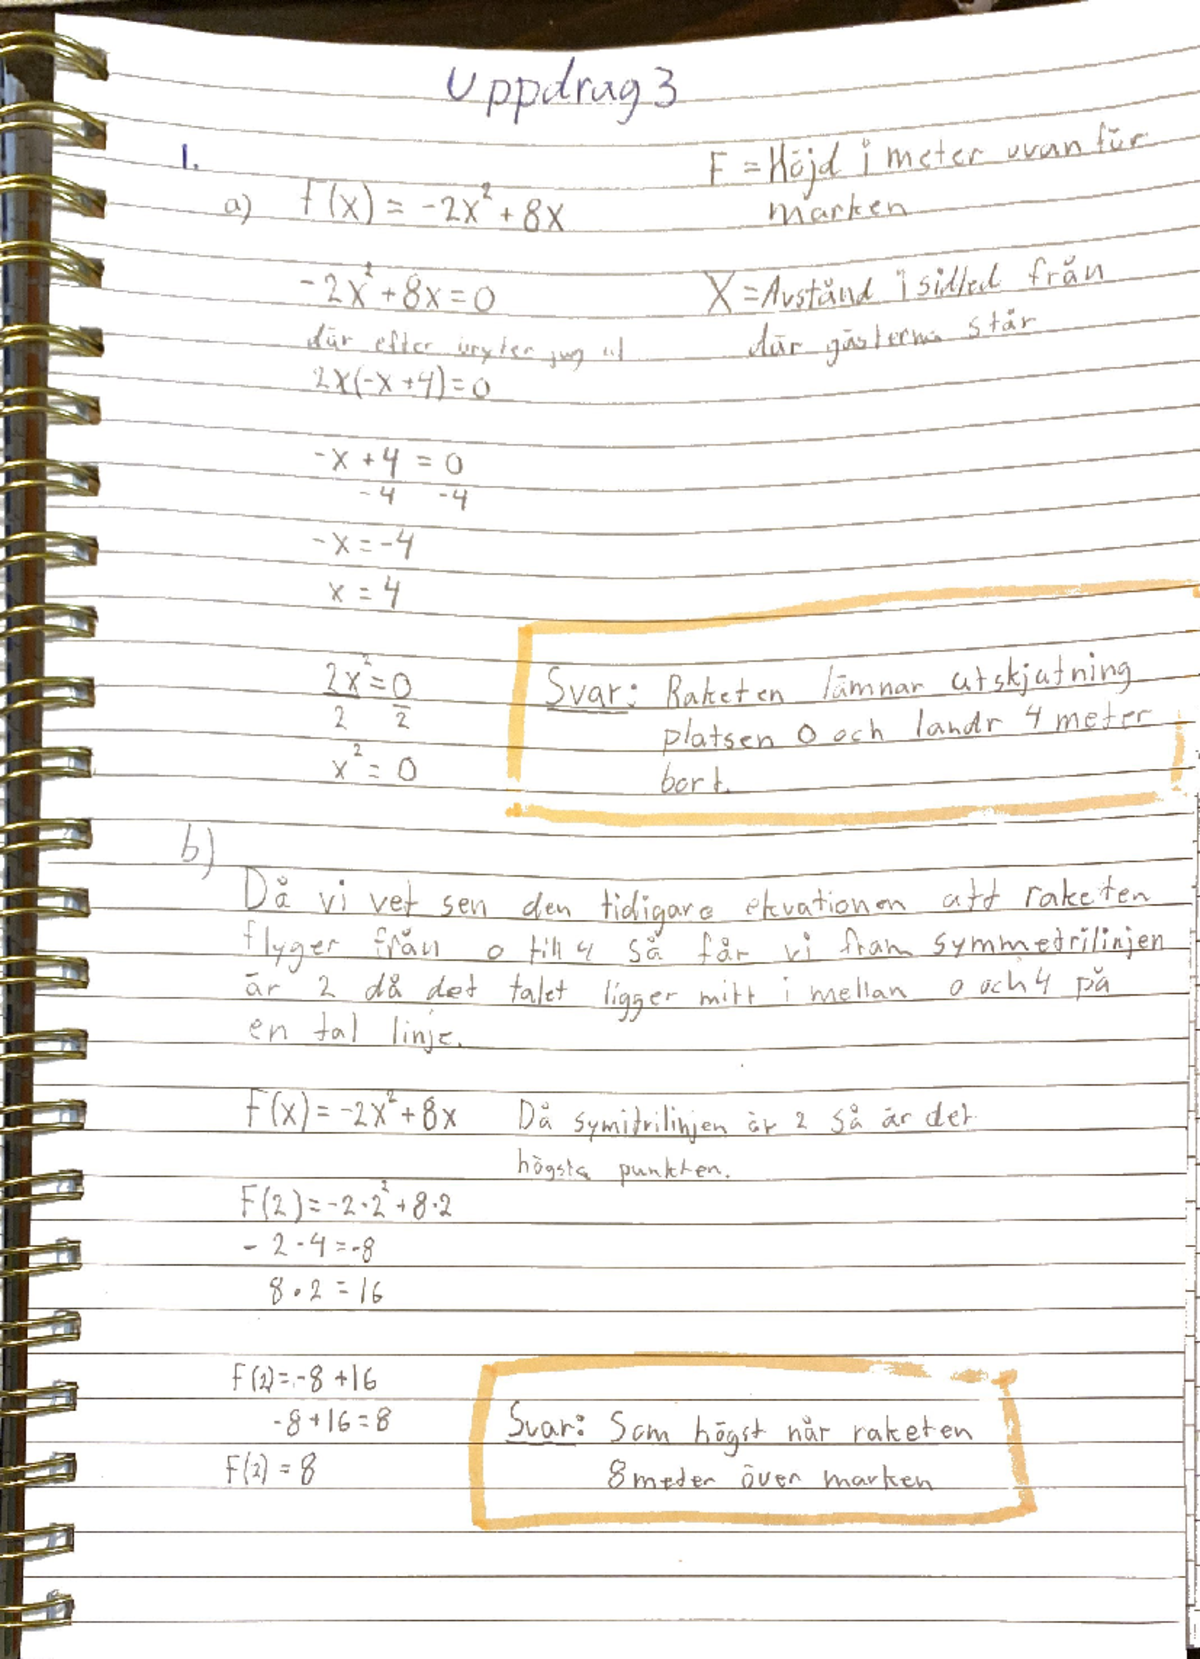 Uppdrag 3
1.
F = Höjd i meter ovan för
marken
a) f(x) = -2x² + 8x
-2x² + 8x = 0
X = Avstånd i sidled från
där gästerna står
där efter bryter jag ut
2x(-x+4) = 0
-x + 4 = 0
-4 -4
-x = -4
x = 4
2x² = 0
2 2
x² = 0
Svar: Raketen lämnar utskjutning
platsen 0 och landr 4 meter
bort.
b)
Då vi vet sen den tidigare ekvationen att raketen
flyger från 0 till 4 så får vi fram symmetrilinjen
är 2 då det talet ligger mitt i mellan 0 och 4 på
en tal linje.
F(x) = -2x² + 8x Då symitrilinjen är 2 så är det
högsta punkten.
F(2) = -2·2² + 8·2
-2·4 = -8
8·2 = 16
F(2) = -8 + 16
-8 + 16 = 8
F(2) = 8
Svar: Som högst når raketen
8 meder över marken